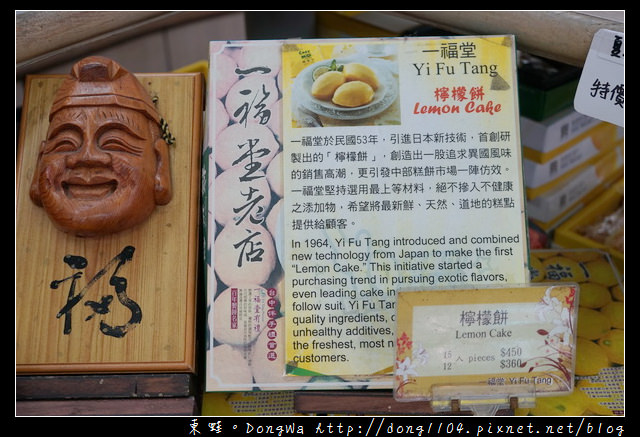 福
一福堂老店
一福堂
Yi Fu Tang
檸檬餅
Lemon Cake
一福堂於民國53年，引進日本新技術，首創研
製出的「檸檬餅」，創造出一股追求異國風味
的銷售高潮，更引發中部糕餅市場一陣仿效。
一福堂堅持選用最上等材料，絕不摻入不健康
之添加物，希望將最新鮮、天然、道地的糕點
提供給顧客。
In 1964, Yi Fu Tang introduced and combined
new technology from Japan to make the first
“Lemon Cake.” This initiative started a
purchasing trend in pursuing exotic flavors,
even leading cake in
follow suit. Yi Fu Tang
quality ingredients,
unhealthy additives,
the freshest, most n
customers.
檸檬餅
Lemon Cake
15 入 pieces $450
12 $360
一福堂 Yi Fu Tang
特價
東哇。DongWa http://dong1104.pixnet.net/blog